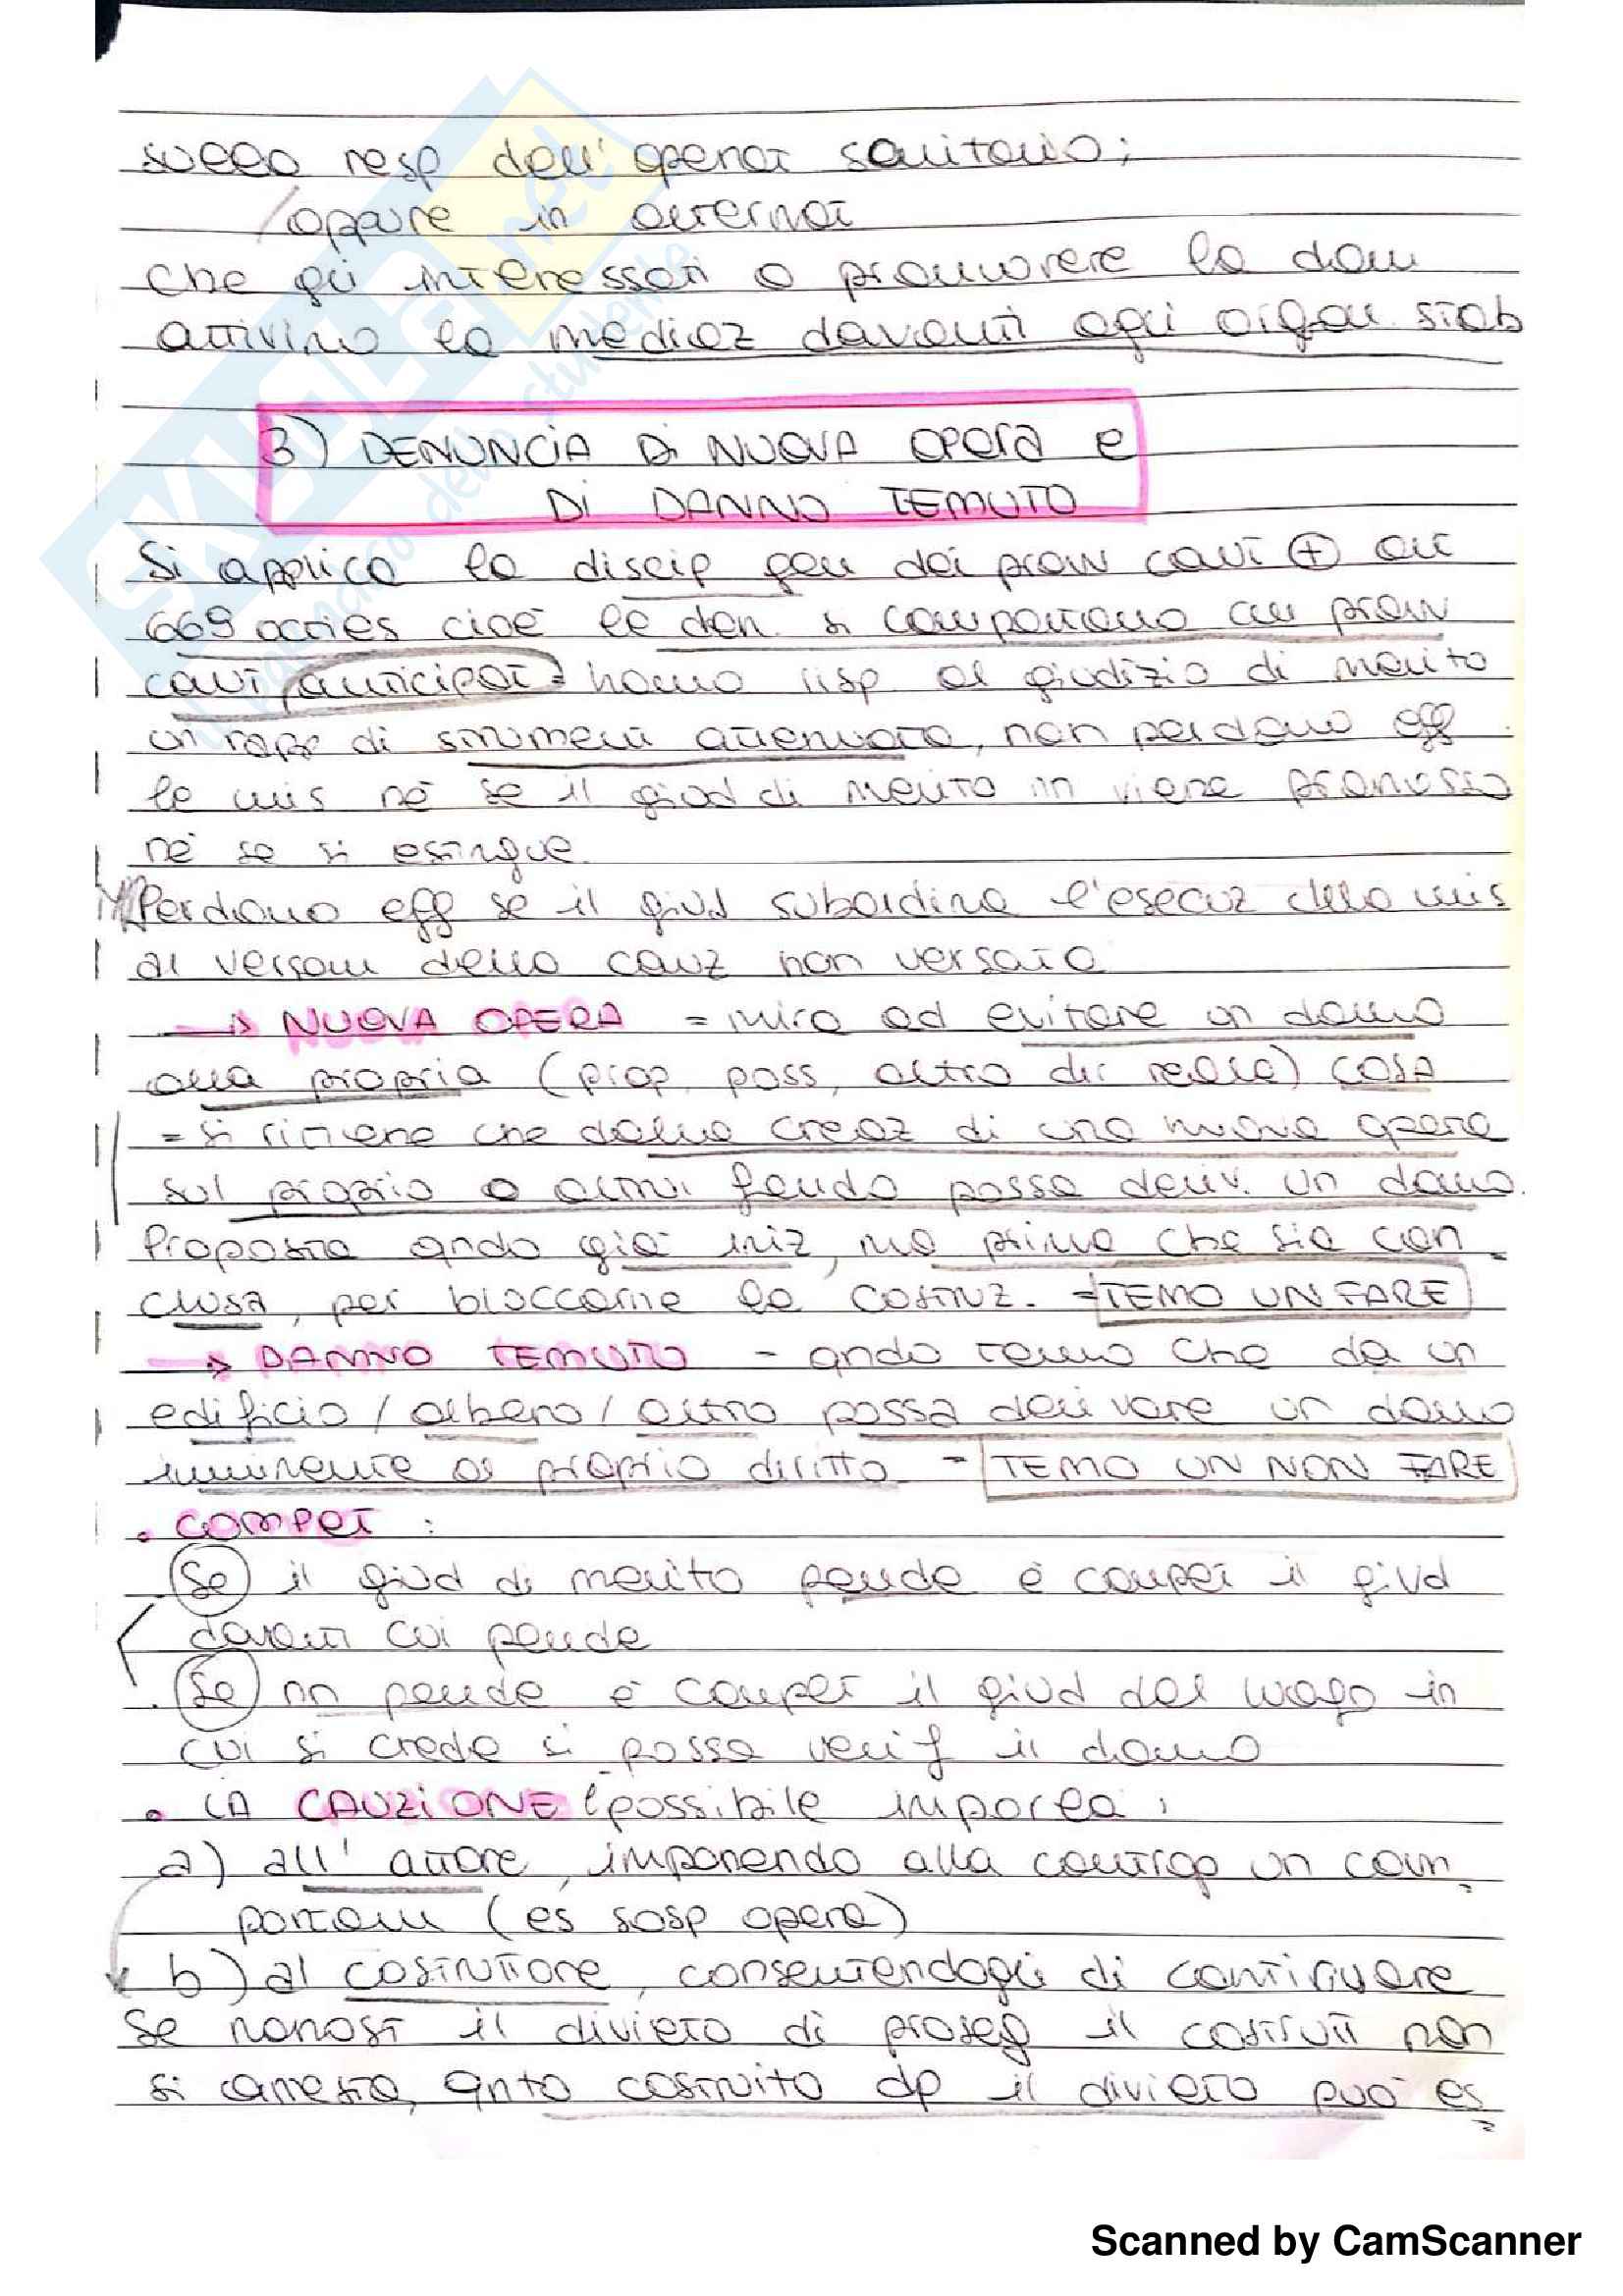 sulla resp dell' operat sanitario;
oppure in alternat
che gli interessati a promuovere la dom
attivino la mediaz davanti agli organ. stab
3) DENUNCIA DI NUOVA OPERA e
DI DANNO TEMUTO
Si applica la discip gen dei provv caut + art
669 octies cioè le den. si comportano cm provv
caut anticipat = hanno risp al giudizio di merito
un rapp di strument attenuata, non perdono eff
le mis né se il giud di merito nn viene promosso
né se si estingue.
Perdono eff se il giud subordina l'esecuz della mis
al versam della cauz non versata
→ NUOVA OPERA = mira ad evitare un danno
alla propria (prop, poss, altro dir reale) COSA
= si ritiene che dalla creaz di una nuova opera
sul proprio o altrui fondo possa deriv. un danno.
Proposta qndo già iniz, ma prima che sia con=
clusa, per bloccarne la costruz. = TEMO UN FARE
→ DANNO TEMUTO - qndo temo che da un
edificio / albero / altro possa derivare un danno
imminente al proprio diritto - TEMO UN NON FARE
• COMPET :
. Se il giud di merito pende è compet il giud
davanti cui pende
. Se nn pende è compet il giud del luogo in
cui si crede si possa verif il danno
• LA CAUZIONE è possibile imporla:
a) all' attore, imponendo alla controp un com=
portam (es sosp opera)
b) al costruttore, consentendogli di continuare
Se nonost il divieto di proseg il costrutt non
si arresta, qnto costruito dp il divieto può es=
SKUOLA.net
il paradiso dello studente
Scanned by CamScanner